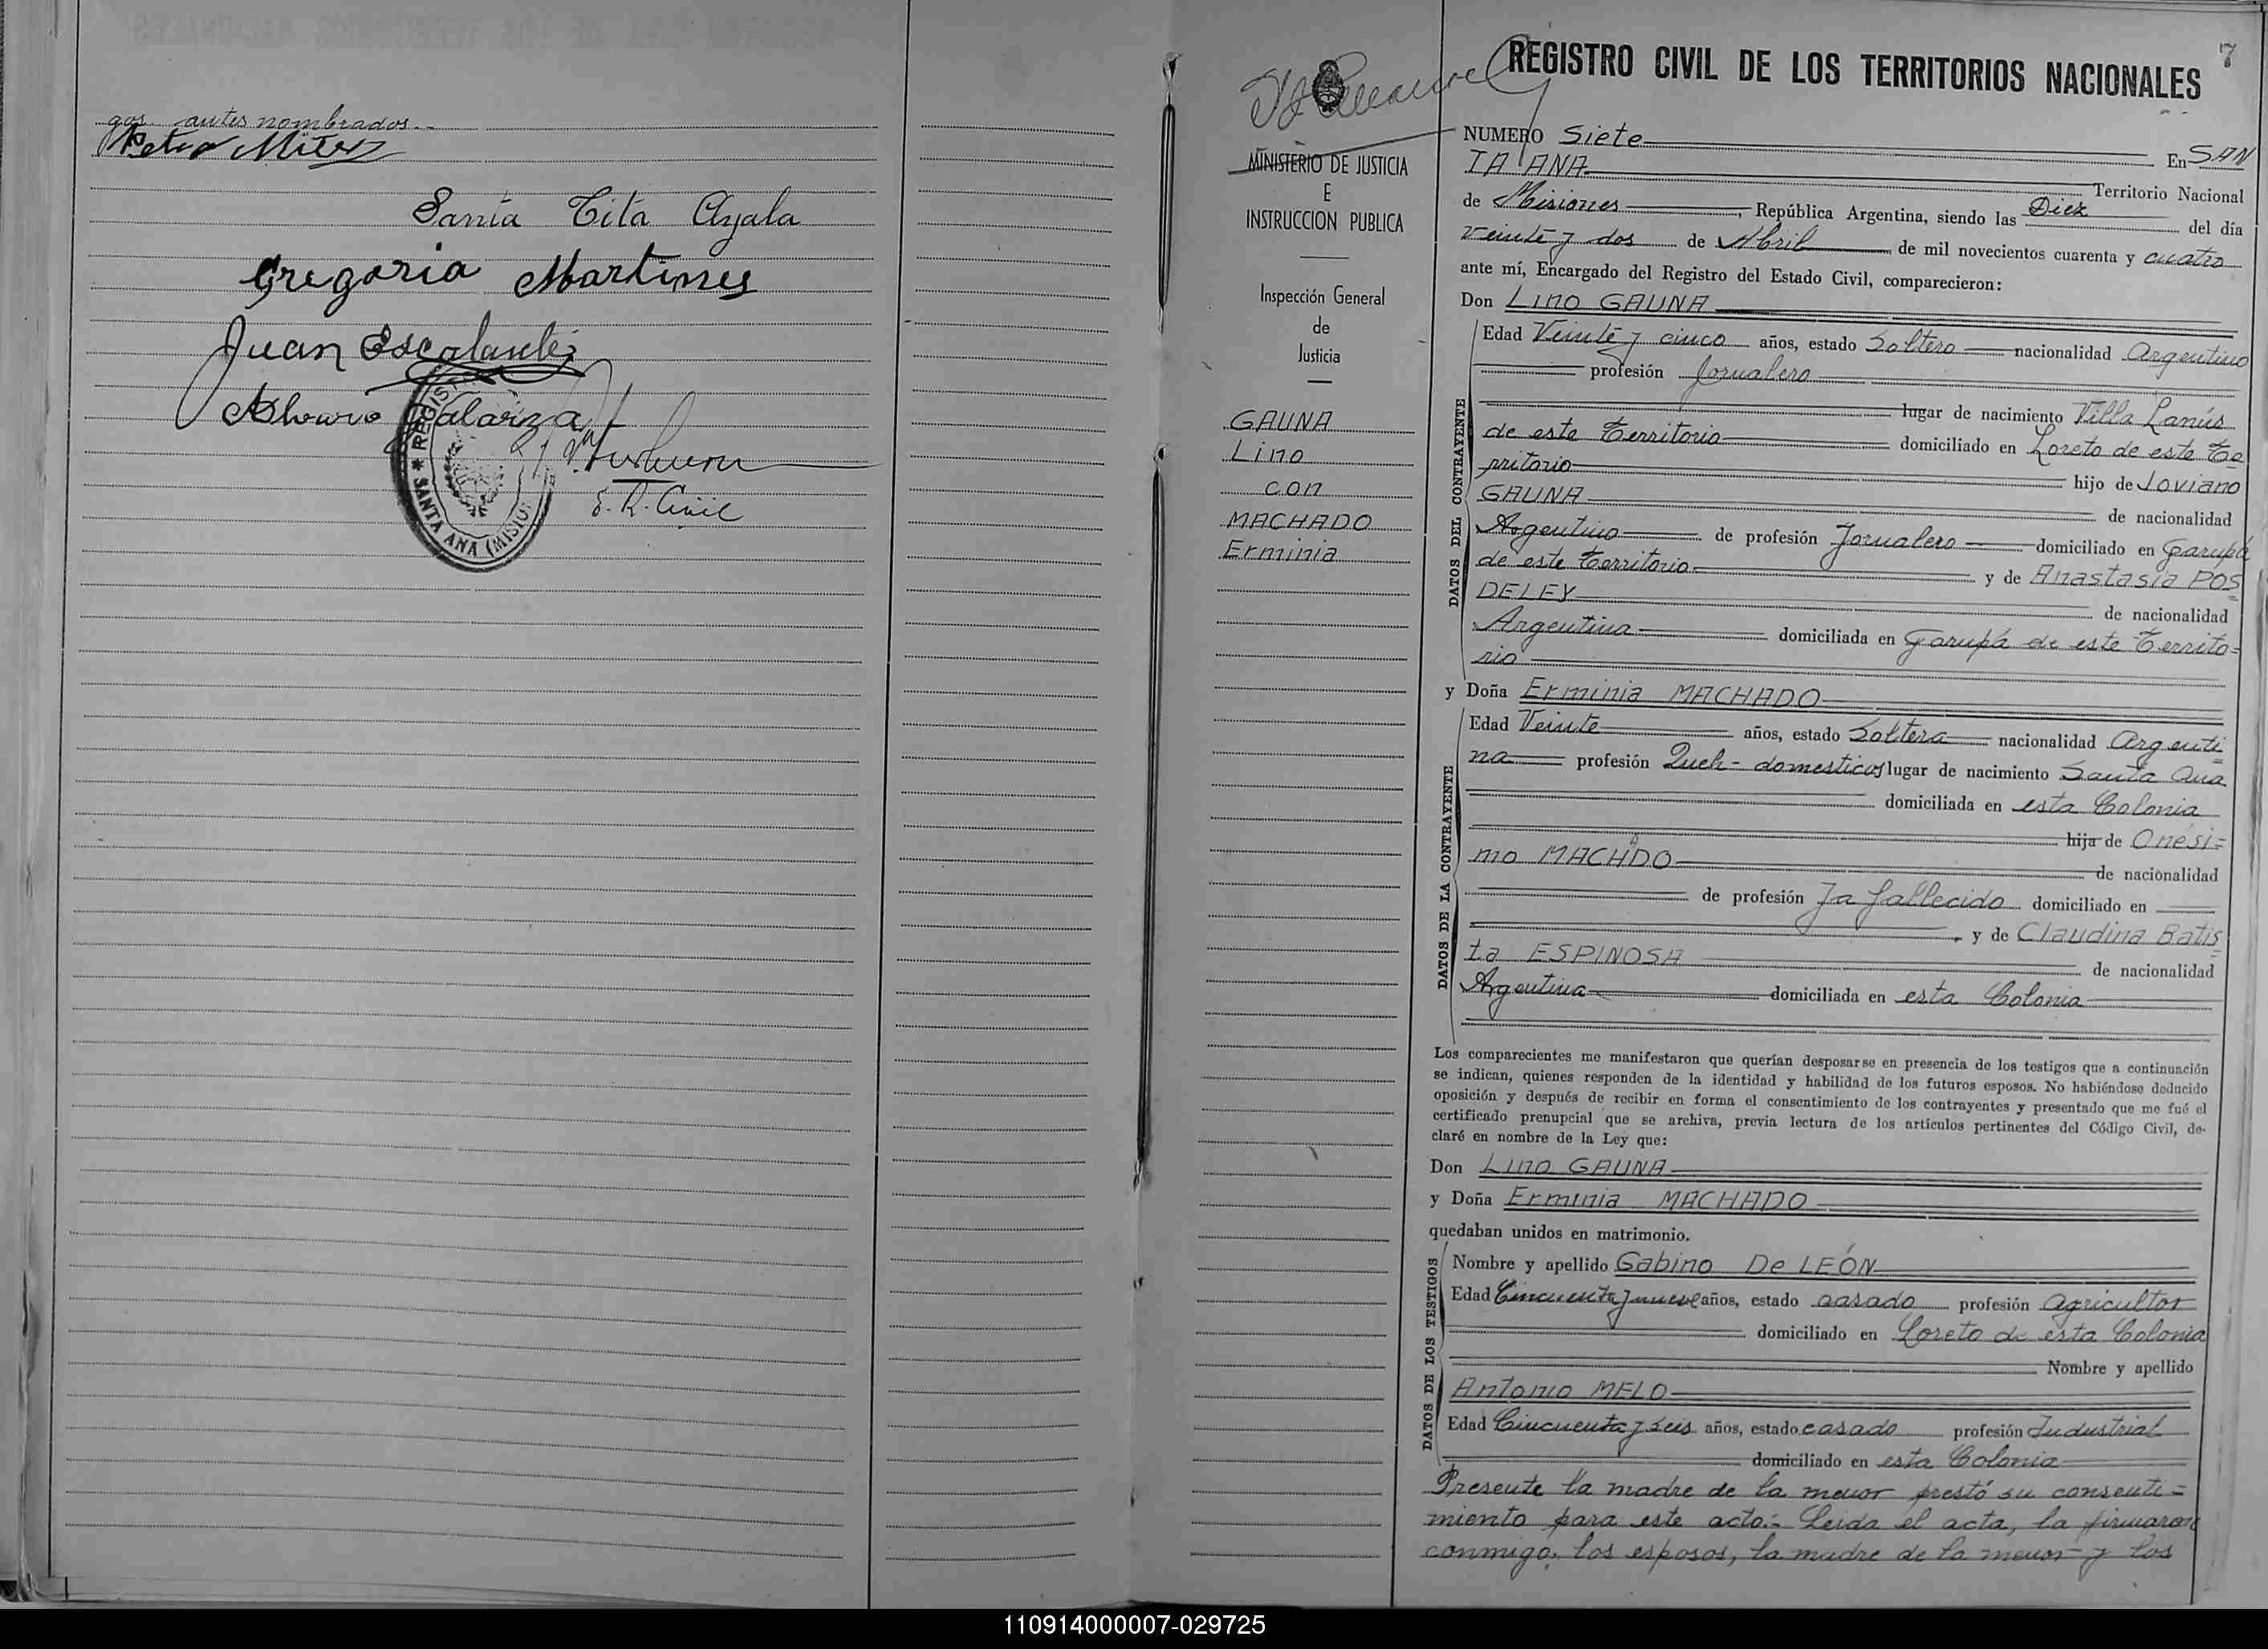 gos antes nombrados.-
Santa Tita Ayala
Gregoria Martines
Juan Escalante
Galarza
* REGIS
SANTA ANA (MISIO
E. R. Civil
7
REGISTRO CIVIL DE LOS TERRITORIOS NACIONALES
MINISTERIO DE JUSTICIA
E
INSTRUCCION PUBLICA
Inspección General
de
Justicia
GAUNA
Lino
con
MACHADO
Erminia
NUMERO Siete En SAN
TA ANA Territorio Nacional
de Misiones, República Argentina, siendo las Diez del día
veinte y dos de Abril de mil novecientos cuarenta y cuatro
ante mí, Encargado del Registro del Estado Civil, comparecieron:
Don Lino GAUNA
DATOS DEL CONTRAYENTE
Edad Veinte y cinco años, estado Soltero nacionalidad Argentino
profesión Jornalero
lugar de nacimiento Villa Lanús
de este Territorio domiciliado en Loreto de este Te=
rritorio hijo de Joviano
GAUNA de nacionalidad
Argentino de profesión Jornalero domiciliado en Garupá
de este Territorio y de Anastasia POS=
DELEY de nacionalidad
Argentina domiciliada en Garupá de este Territo=
rio
y Doña Erminia MACHADO
DATOS DE LA CONTRAYENTE
Edad Veinte años, estado Soltera nacionalidad Argenti=
na profesión Queh- domesticos lugar de nacimiento Santa Ana
domiciliada en esta Colonia
hija de Onési=
mo MACHADO de nacionalidad
de profesión Ja fallecido domiciliado en
y de Claudina Batis=
ta ESPINOSA de nacionalidad
Argentina domiciliada en esta Colonia
Los comparecientes me manifestaron que querían desposarse en presencia de los testigos que a continuación
se indican, quienes responden de la identidad y habilidad de los futuros esposos. No habiéndose deducido
oposición y después de recibir en forma el consentimiento de los contrayentes y presentado que me fué el
certificado prenupcial que se archiva, previa lectura de los artículos pertinentes del Código Civil, de-
claré en nombre de la Ley que:
Don Lino GAUNA
y Doña Erminia MACHADO
quedaban unidos en matrimonio.
DATOS DE LOS TESTIGOS
Nombre y apellido Gabino De LEÓN
Edad Cincuenta y nueve años, estado casado profesión agricultor
domiciliado en Loreto de esta Colonia
Nombre y apellido
Antonio MELO
Edad Cincuenta y seis años, estado casado profesión Industrial
domiciliado en esta Colonia
Presente la madre de la menor prestó su consenti=
miento para este acto.- Leida el acta, la firmaron
conmigo, los esposos, la madre de la menor y los
110914000007-029725